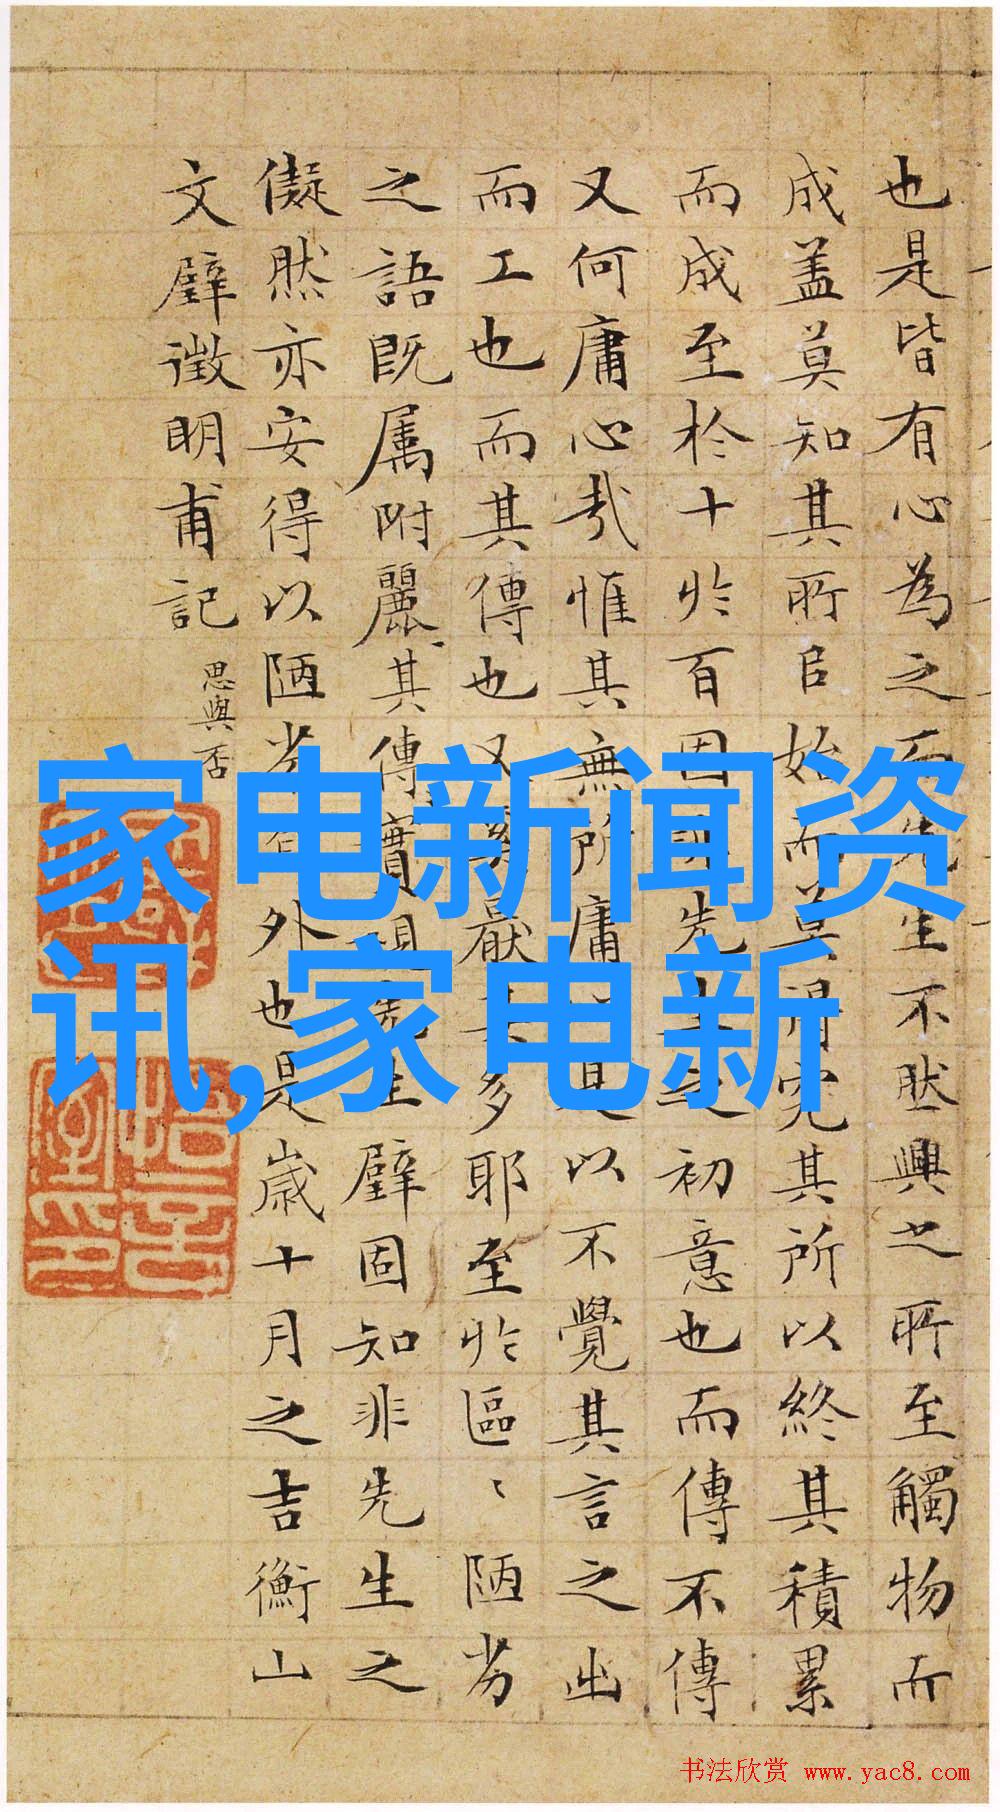 也是皆有心為之而先生不然興之所至觸物而
成盖莫知其所㠯始而莫得究其所以終其積累
而成至於十於百因非先生之初意也而傳不傳
又何庸心哉惟其無所庸是以不覺其言之出
而工也而其傳也又奚厭其多耶至於區〻陋劣
之語既属附麗其傳實視先生璧固知非先生之
儗然亦安得以陋劣自外也是歲十月之吉衡山
文璧徵明甫記
思與否
家电新闻资
讯,家电新
书法欣赏 www.yac8.com